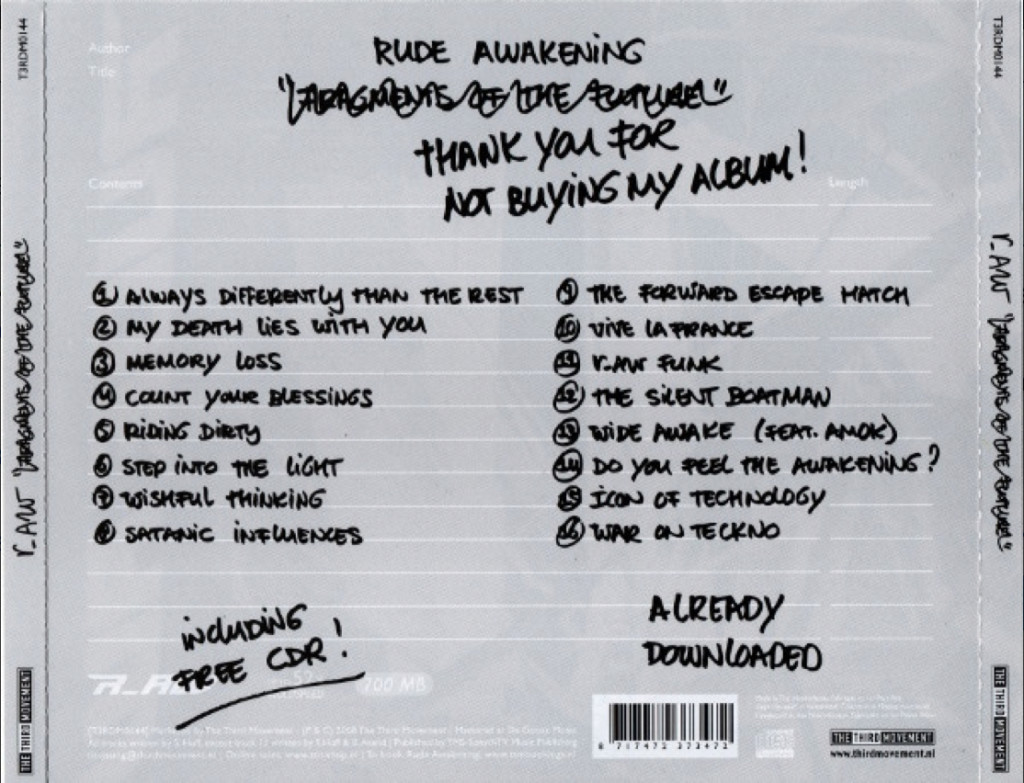 T3RDM0144
Author
Title
RUDE AWAKENING
"FRAGMENTS OF THE FUTURE"
THANK YOU FOR
NOT BUYING MY ALBUM!
Contents
Length
① ALWAYS DIFFERENTLY THAN THE REST
② MY DEATH LIES WITH YOU
③ MEMORY LOSS
④ COUNT YOUR BLESSINGS
⑤ RIDING DIRTY
⑥ STEP INTO THE LIGHT
⑦ WISHFUL THINKING
⑧ SATANIC INFLUENCES
⑨ THE FORWARD ESCAPE HATCH
⑩ VIVE LA FRANCE
⑪ r_AW FUNK
⑫ THE SILENT BOATMAN
⑬ WIDE AWAKE (FEAT. AMOK)
⑭ DO YOU FEEL THE AWAKENING?
⑮ ICON OF TECHNOLOGY
⑯ WAR ON TECKNO
INCLUDING
FREE CDR!
ALREADY
DOWNLOADED
700 MB
8 717472 373472
THE THIRD MOVEMENT
www.thirdmovement.nl
r_AW "FRAGMENTS OF THE FUTURE"
THE THIRD MOVEMENT
T3RDM0144
r_AW "FRAGMENTS OF THE FUTURE"
THE THIRD MOVEMENT